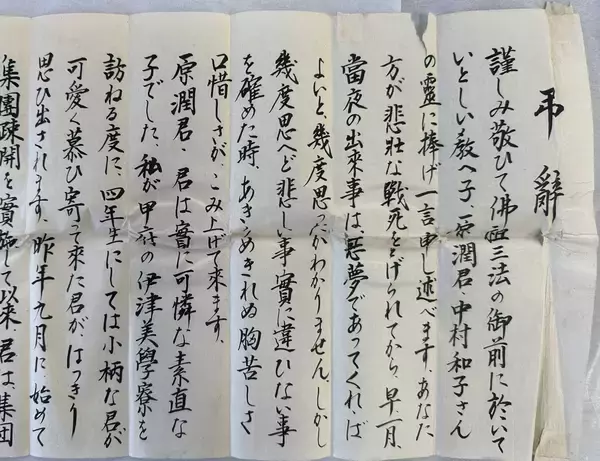 弔辭
謹しみ敬ひて佛壇三法の御前に於いて
いとしい教へ子、原潤君、中村和子さん
の靈に捧げ一言申し述べます、あなた
方が悲壯な戰死をとげられてから、早一月、
當夜の出來事は、惡夢であってくれゝば
よいと、幾度思ったかわかりません、しかし
幾度思へど悲しい事實に違ひない事
を確めた時、あきらめきれぬ胸苦しさ
口惜しさが、こみ上げて来ます、
原潤君・君は實に可憐な素直な
子でした、私が甲府の伊津美學寮を
訪ねる度に、四年生にしては小柄な君が
可愛く慕ひ寄って来た君が、はっきり
思ひ出されます、昨年九月に始めて
集團疎開を實施して以来君は、集团